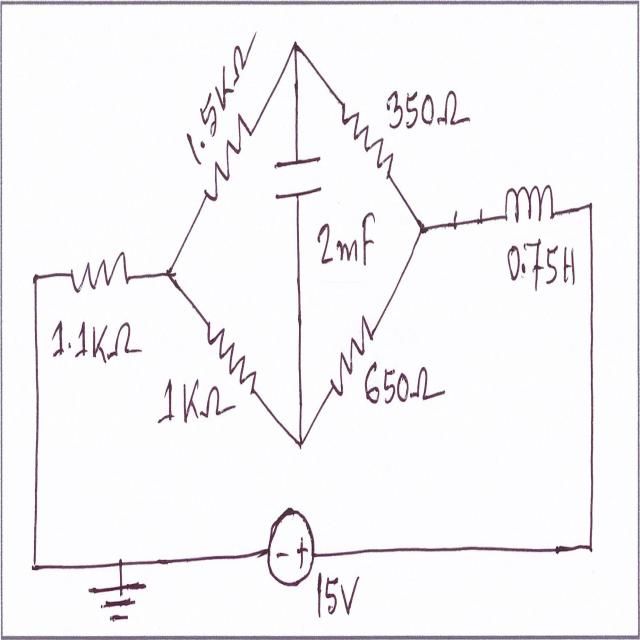 1.5KΩ
350Ω
2mF
0.75H
1.1KΩ
1KΩ
650Ω
- +
15V